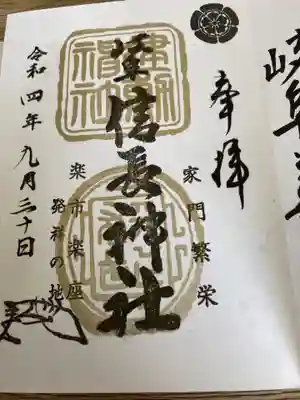 岐阜
奉拝
家門繁栄
信長神社
建勲神社
楽市楽座
発祥の地
令和四年九月三十日